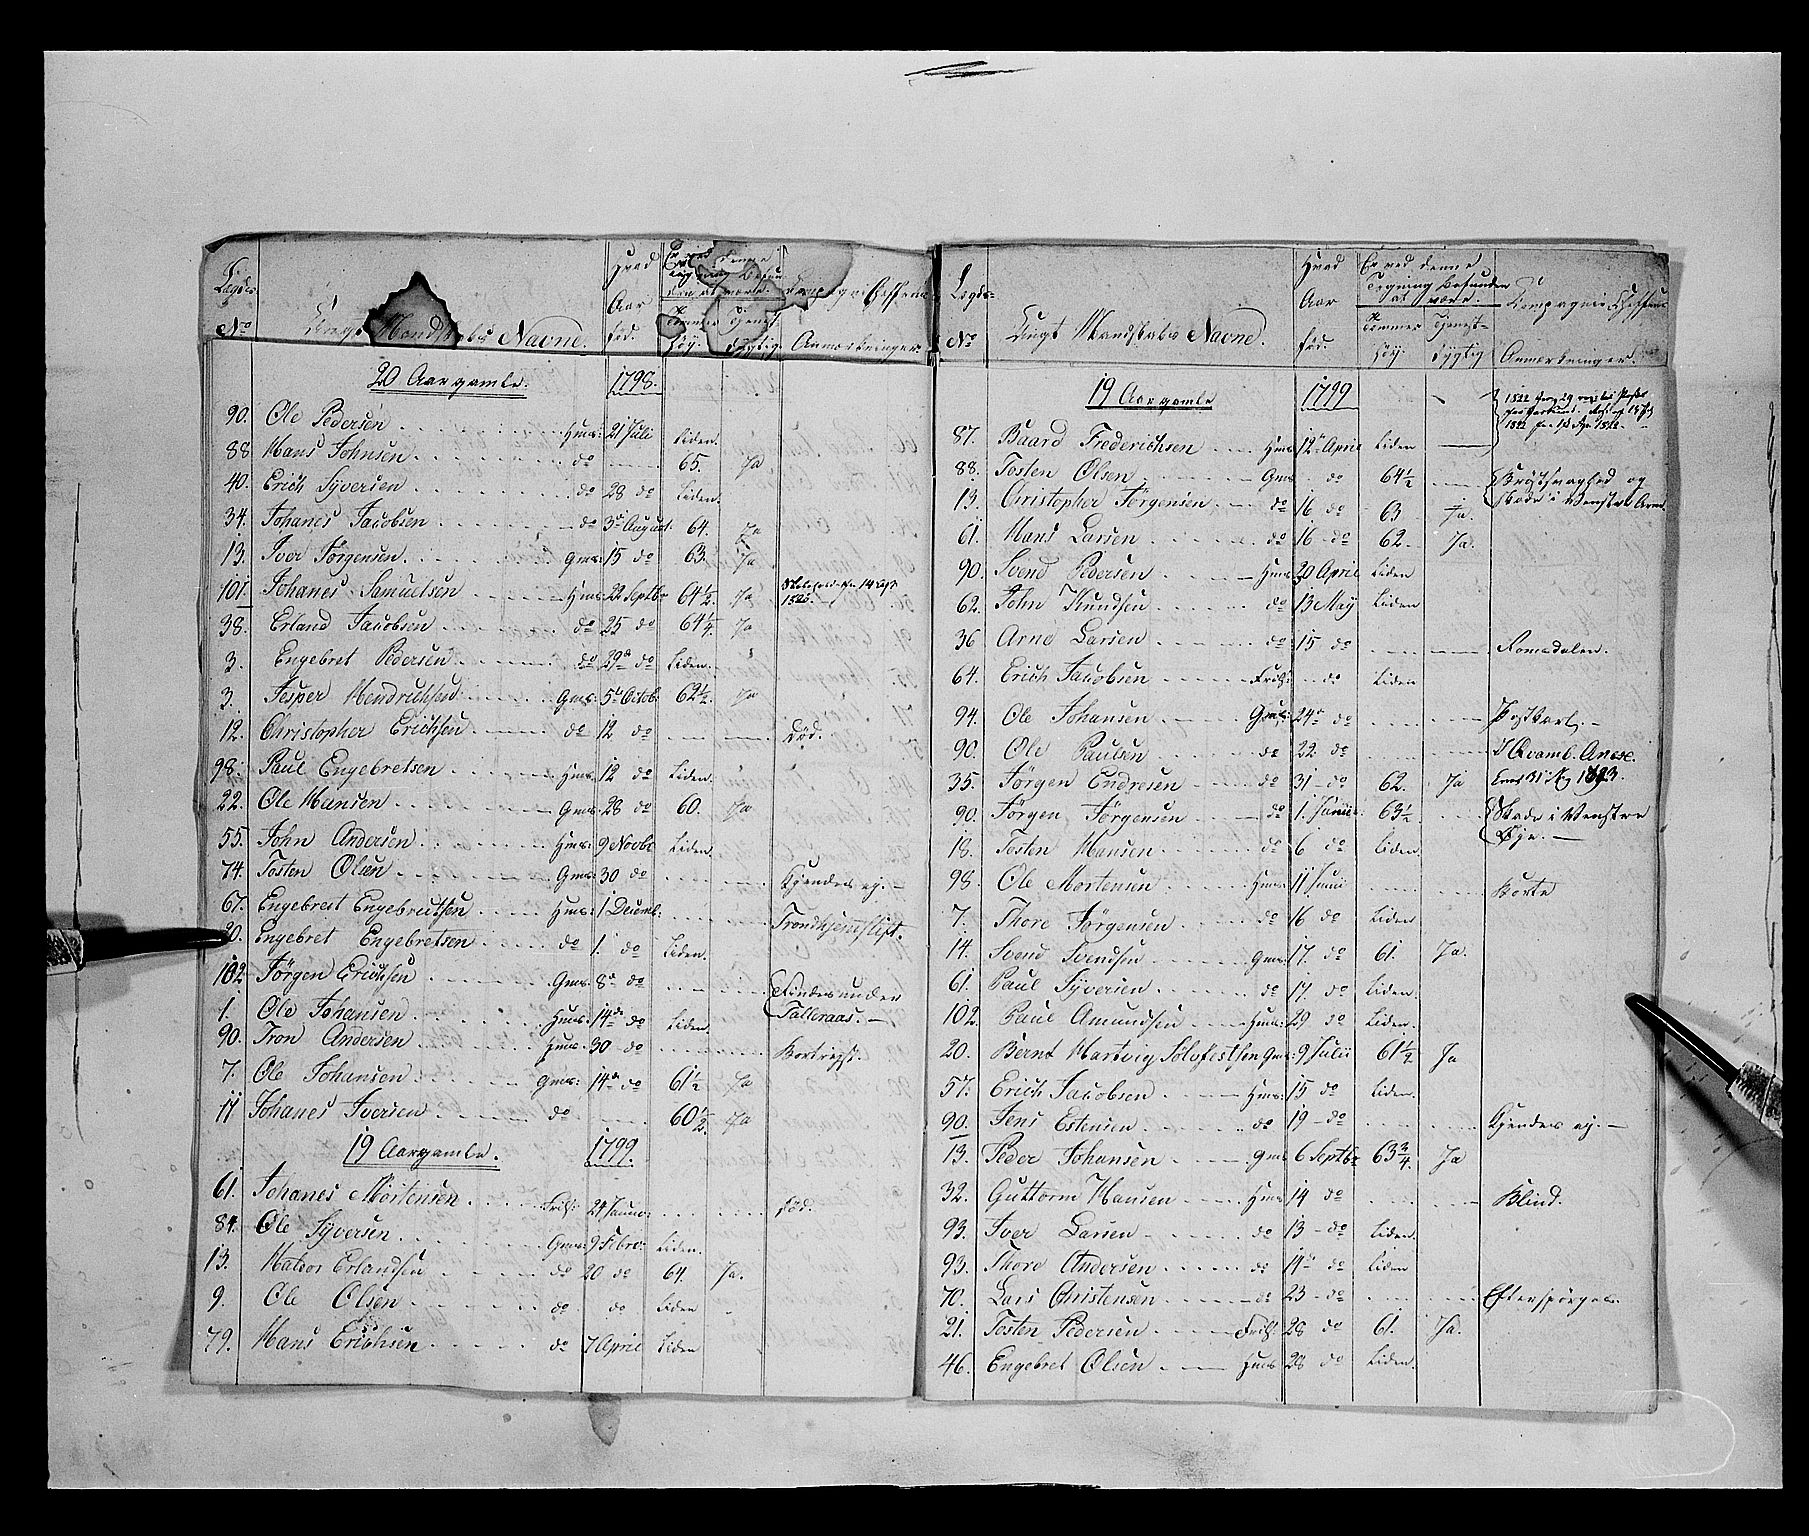 Lægds- No
Ungt Mandskabs Navne.
Hvad Aar fød.
Er ved denne Tegning befunden at være.
Tommer høy.
Tjenst-dygtig
Compagnie Cheffens Anmærkninger.
20 Aargamle. 1798.
90. Ole Pedersen Hms: 21 Juli Liden.
88 Hans Johnsen do 65. Ja
40. Erich Syversen do 28 do Liden.
34. Johanes Jacobsen do 3 August. 64. Ja
13. Iver Jørgensen Gms: 15 do 63. Ja
101. Johanes Samuelsen Hms: 22 Septbr 64½. Ja
38. Erland Jacobsen do 25 do 64¼. Ja
3. Engebret Pedersen do 29 do Liden.
3. Jesper Hendrichsen Gms: 5 Octob: 62½. Ja
12. Christopher Erichsen do 12 do Død.
98. Paul Engebretsen Hms: 12 do Liden.
22. Ole Hansen Gms: 28 do 60. Ja
55. John Andersen Hms: 9 Novbr Liden.
74. Tosten Olsen Gms: 30 do Kjendes ej.
67. Engebret Engebretsen Hms: 1 Decemb: Trondhjemsstift.
90. Engebret Engebretsen do 1. do Liden.
102 Jørgen Erichsen Gms: 8 do Findes under Talleraas.
1. Ole Johansen Hms: 14 do Liden.
90. Iron Andersen Hms: 30 do Bortreist.
7. Ole Johansen Gms: 14 do 61½ Ja
17 Johanes Iversen do 60½. Ja
19 Aargamle. 1799.
61. Johanes Mortensen Frils: 24 Janua: død.
84. Ole Syversen Gms: 9 Febru: Liden.
13. Haldor Erlandsen do 20 do 64. Ja.
9. Ole Olsen do do Liden
79. Hans Erichsen do 7 April Liden
Lægds- No
Ungt Mandskabs Navne.
Hvad Aar fød.
Er ved denne Tegning befunden at være.
Tommer høy.
Tjenst-dygtig
Compagnie Cheffens Anmærkninger.
19 Aargamle 1799
87. Baard Frederichsen Hms 12 April Liden
88. Tosten Olsen Gms do 64½ Brøstsvaghed og Skade i Venstre Arm.
13. Christopher Jørgensen do 16 do 63 Ja.
61. Hans Larsen do 16 do 62. Ja.
90. Svend Pedersen Hms: 20 April Liden
62. John Knudsen do 13 May Liden
36 Arne Larsen do 15 do Romsdalen.
64. Erich Jacobsen Frils: do Liden
94. Ole Johansen Gms: 24 do Postkarl.
90. Ole Paulsen do 22. do I Qvamb. Anex.
35. Jørgen Endresen do 31 do 62. Ja
90. Jørgen Jørgensen do 1. Junii 63½ Skade i Venstre Øye.
18. Tosten Hansen do 6 do Liden.
98. Ole Mortensen Hms: 11 Junii Borte
7. Thore Jørgensen do 16 do Liden.
14. Svend Svendsen Gms: 17. do 61. Ja.
61. Paul Syversen do 17. do Liden.
102. Paul Amundsen Hms: 29 do Liden.
20. Bernt Hartvig Sølvfestsen Gms: 9 Julii 61½ Ja
57. Erich Jacobsen Hms: 15 do Liden.
90. Jens Estensen do 19 do Kjendes ej.
13. Peder Johansen Gms 6 Septbr 63¾. Ja
32. Guttorm Hansen Hms 14 do Blind.
93. Iver Larsen do 13 do Liden.
93. Thore Andersen do 14 do Liden
70. Lars Christensen do 23 do Efterspørges.
21. Tosten Pedersen Frils: 28 do 61. Ja.
46. Engebret Olsen Hms 28 do Liden.